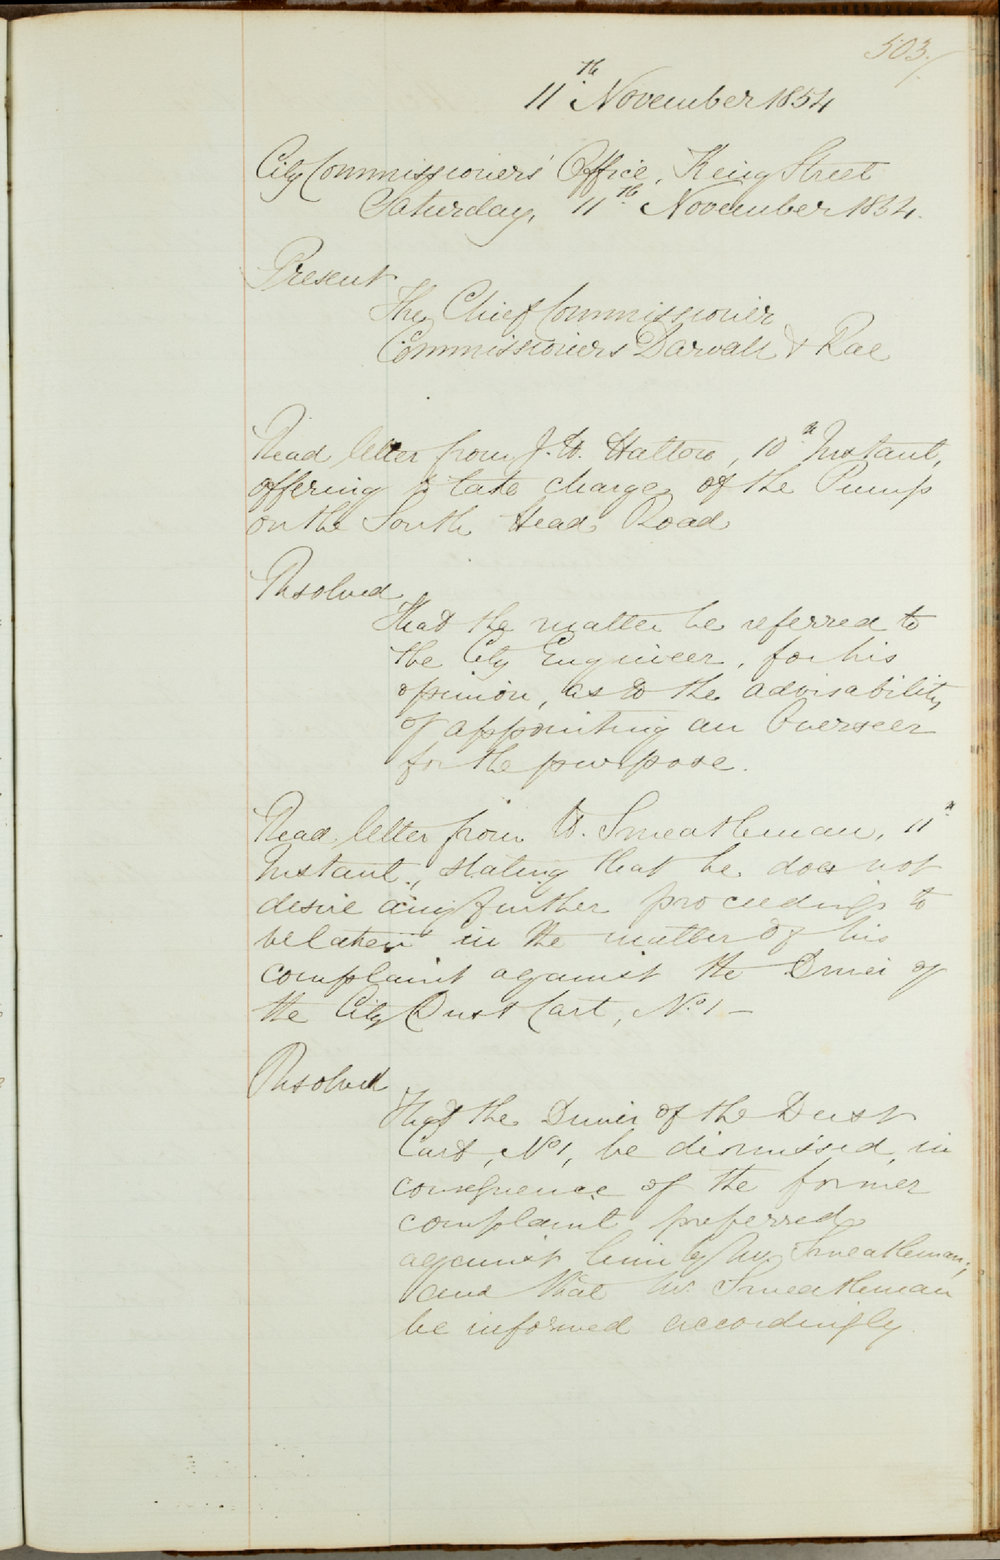 503./
11th November 1854
City Commissioners' Office, King Street
Saturday, 11th November 1854.
Present
The Chief Commissioner
Commissioners Darvall & Rae
Read letter from J. W. Hatton, 10th Instant,
offering to take charge of the Pump
on the South Head Road
Resolved
That the matter be referred to
the City Engineer, for his
opinion, as to the advisability
of appointing an Overseer
for the purpose.
Read letter from W. Smeatheman, 11th
Instant, stating that he does not
desire any further proceedings to
be taken in the matter of his
complaint against the Driver of
the City Dust Cart, No. 1 —
Resolved
That the Driver of the Dust
Cart, No 1, be dismissed, in
consequence of the former
complaint preferred
against him by Mr. Smeatheman,
and that Mr. Smeatheman
be informed accordingly.